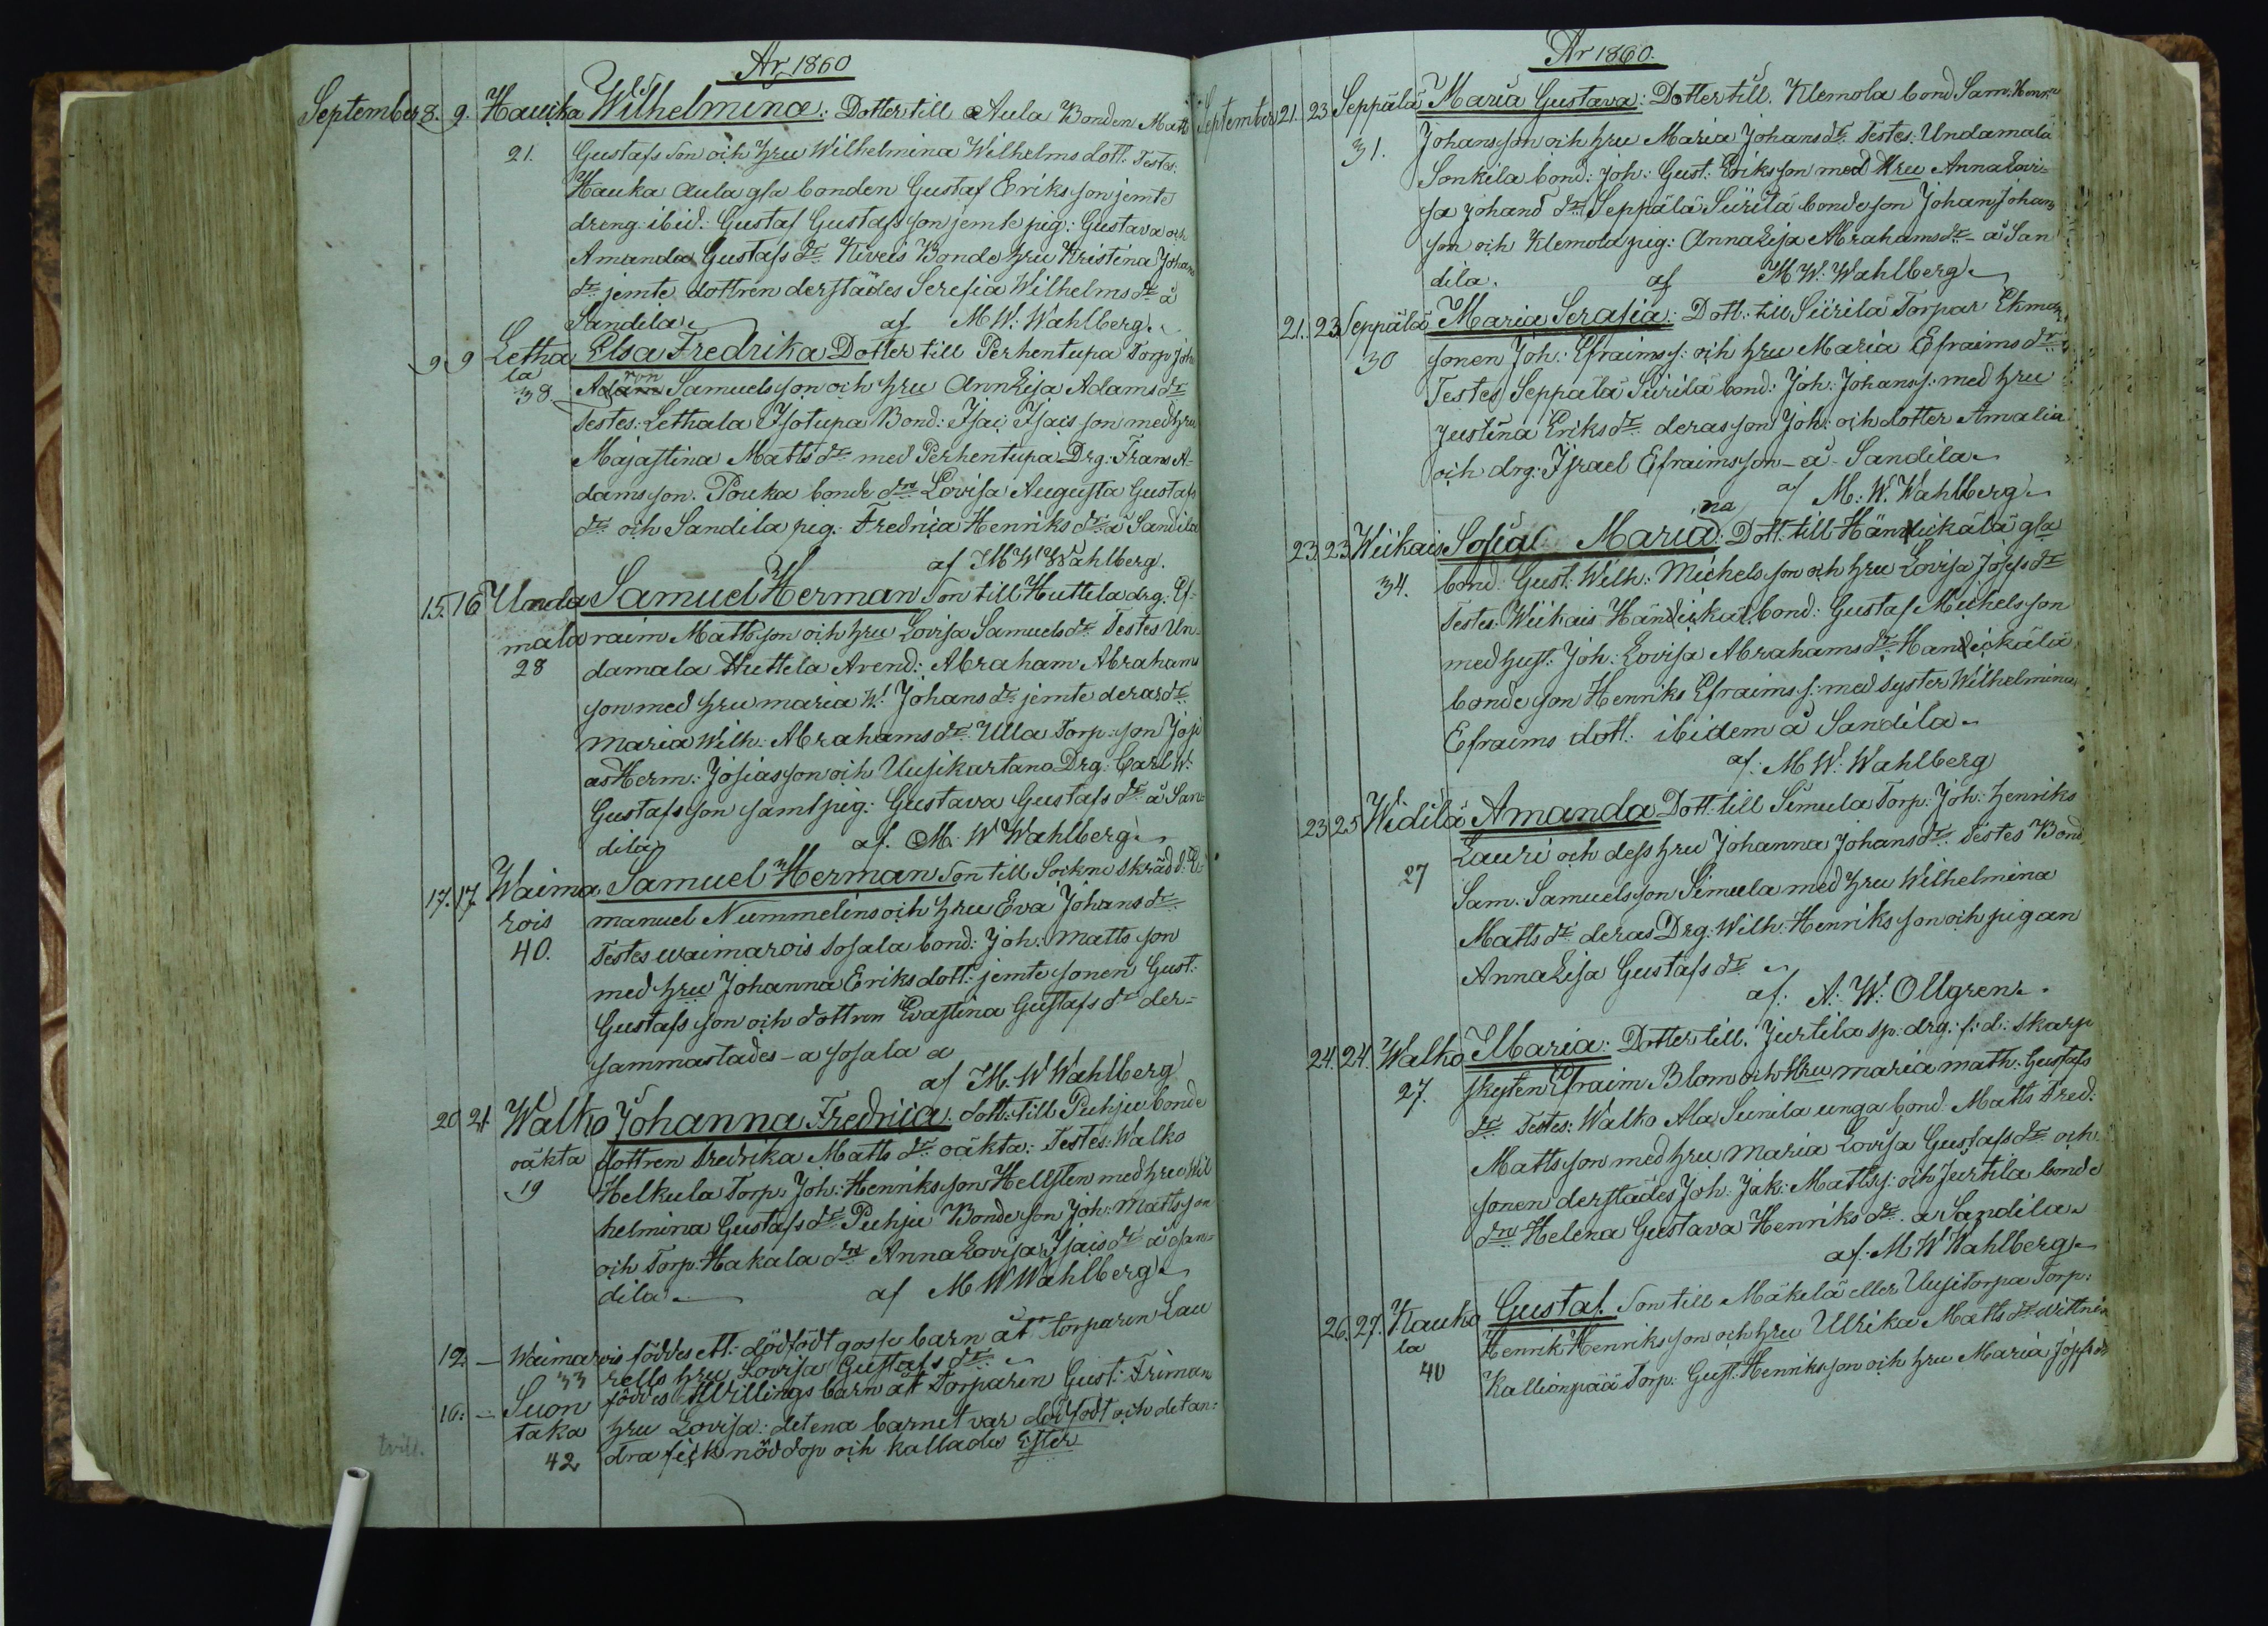 År 1860
September 8. 9. Hauka Wilhelmina: Dotter till Aula Bonden Matts
21. Gustafs son och hru Wilhelmina Wilhelms dott. Testes:
Hauka Aula gla bonden Gustaf Eriks son jemte
dreng ibid: Gustaf Gustafs son jemte pig: Gustava och
Amanda Gustafs dr Kiveis Bonde hru Kristina Johans
dr jemte dottren derstädes Serefia Wilhelms dr å
Sandila af M W: Wahlberg.
9 9 Letha Elsa Fredrika Dotter till Perhentupa Torp Joh:
la Adam ron Samuels son och hru Anna Lisa Adams dr
38. Testes: Lethala Isotupa Bond: Isai Isais son med hru
Majastina Matts dr med Perhentupa Drg: Frans A-
dams son. Pouka bonde drn Lovisa Augusta Gustafs
dr och Sandila pig: Fredrica Henriks dr å Sandila
af M W Wahlberg.
15. 16 Unda Samuel Herman Son till Huttela drg: Ef-
mala raim Matts son och hru Lovisa Samuels dr Testes Un-
28 damala Huttela Arend: Abraham Abrahams
son med hru maria W: Johans dr jemte deras dr
Maria Wilh: Abrahams dr Ulla Torp: son Josi
as Herm: Josias son och Uusikartano Drg: Carl W:
Gustafs son samt pig: Gustava Gustafs dr å San-
dila af. M. W Wahlberg.
17. 17. Waima Samuel Herman Son till Sockne Skrädd: E-
rois manuel Nummelins och hru Eva Johans dr
40. Testes waimarois Sosala bond: Joh: Matts son
med hru Johanna Eriks dott: jemte sonen Gust:
Gustafs son och dottren Evastina Gustafs dr der-
sammastades - a sosala a
af M. W Wahlberg
20 21 Walko Johanna Fredricia. dott: till Puhju bonde
oäkta dottren Fredrika Matts dr oäkta: Testes: Walko
19 Helkula Torp: Joh: Henriks son Hellsten med hru Wil
helmina Gustafs dr Puhju Bonde son Joh: Matts son
och Torp: Hakala drn Anna Lovisa Isais dr å San-
dila af M W Wahlberg
12: – Waimarois föddes ett: dödfödt gosse barn åt Torparen Lau
33 rells hru Lovisa Gustafs dr:
16: – Suon föddes Tvillings barn åt Torparen Gust: Friman
taka hru Lovisa: det ena barnet var dödfödt och det an-
42 dra fick nöd dop och kallades Ester
tvill.
År 1860.
September 21. 23 Seppälä Maria Gustava: Dotter till. Klemola bond Sam: Henr:
31. Johans son och hru Maria Johans dr. Testes: Undamala
Sonkila bond: Joh: Gust: Eriks son med Hru Anna Lovi-
sa Johans dr. Seppälä Siirilä bonde son Johan Johans
son och Klemola pig: Anna Lisa Abrahams dr - å San
dila. af M W: Wahlberg
21. 23 Seppälä Maria Serafia: Dott: till Siirilä Torpar Ekman
30 sonen Joh: Efraims s: och hru Maria Efraims dr
Testes Seppälä Siirilä bond: Joh: Johans s: med hru
Justina Eriks dr deras son Joh: och dotter Amalia
och drg: Israel Efraims son - å - Sandila
af M: W. Wahlberg
23. 23. Wiikais Sofia Maria na: Dott: till Händickälä gla
34. bond: Gust: Wilh: Michels son och hru Lovisa Josefs dr
Testes: Wiikais Händickäl bond: Gustaf Michels son
med hust: Joh: Lovisa Abrahams dr Handickälä
bonde son Henriks Efraims s: med syster Wilhelmina
Efraims dott: ibidem å Sandila
af: M W: Wahlberg
23 25 Widilä Amanda Dott: till Simula Torp: Joh: Henriks
27 Lauri och dess hru Johanna Johans dr Testes Bond
Sam. Samuels son Simula med hru Wilhelmina
Matts dr deras Drg: Wilh: Henriks son och pigan
Anna Lisa Gustafs dr
af: A: W: Ollgren.
24. 24. Walko Maria: Dotter till. Jurtila sp: drg: f: d: Skarp
27. skyten Efraim Blom och Hru maria math: Gustafs
dr Testes: Walko Ala Sunila unga bond: Matts Fred:
Matts son med hru Maria Lovisa Gustafs dr och
sonen derstädes Joh: Jak: Matts s: och Jurtila bonde
drn Helena Gustava Henriks dr a Sandila
af M W Wahlberg
26. 27. Kauha Gustaf. Son till Mäkelä eller Uusitorpa Torp:
la Henrik Henriks son och hru Ulrika Matts dr wittnen
40 Kallionpää Torp: Gust: Henriks son och hru Maria Josefs dr